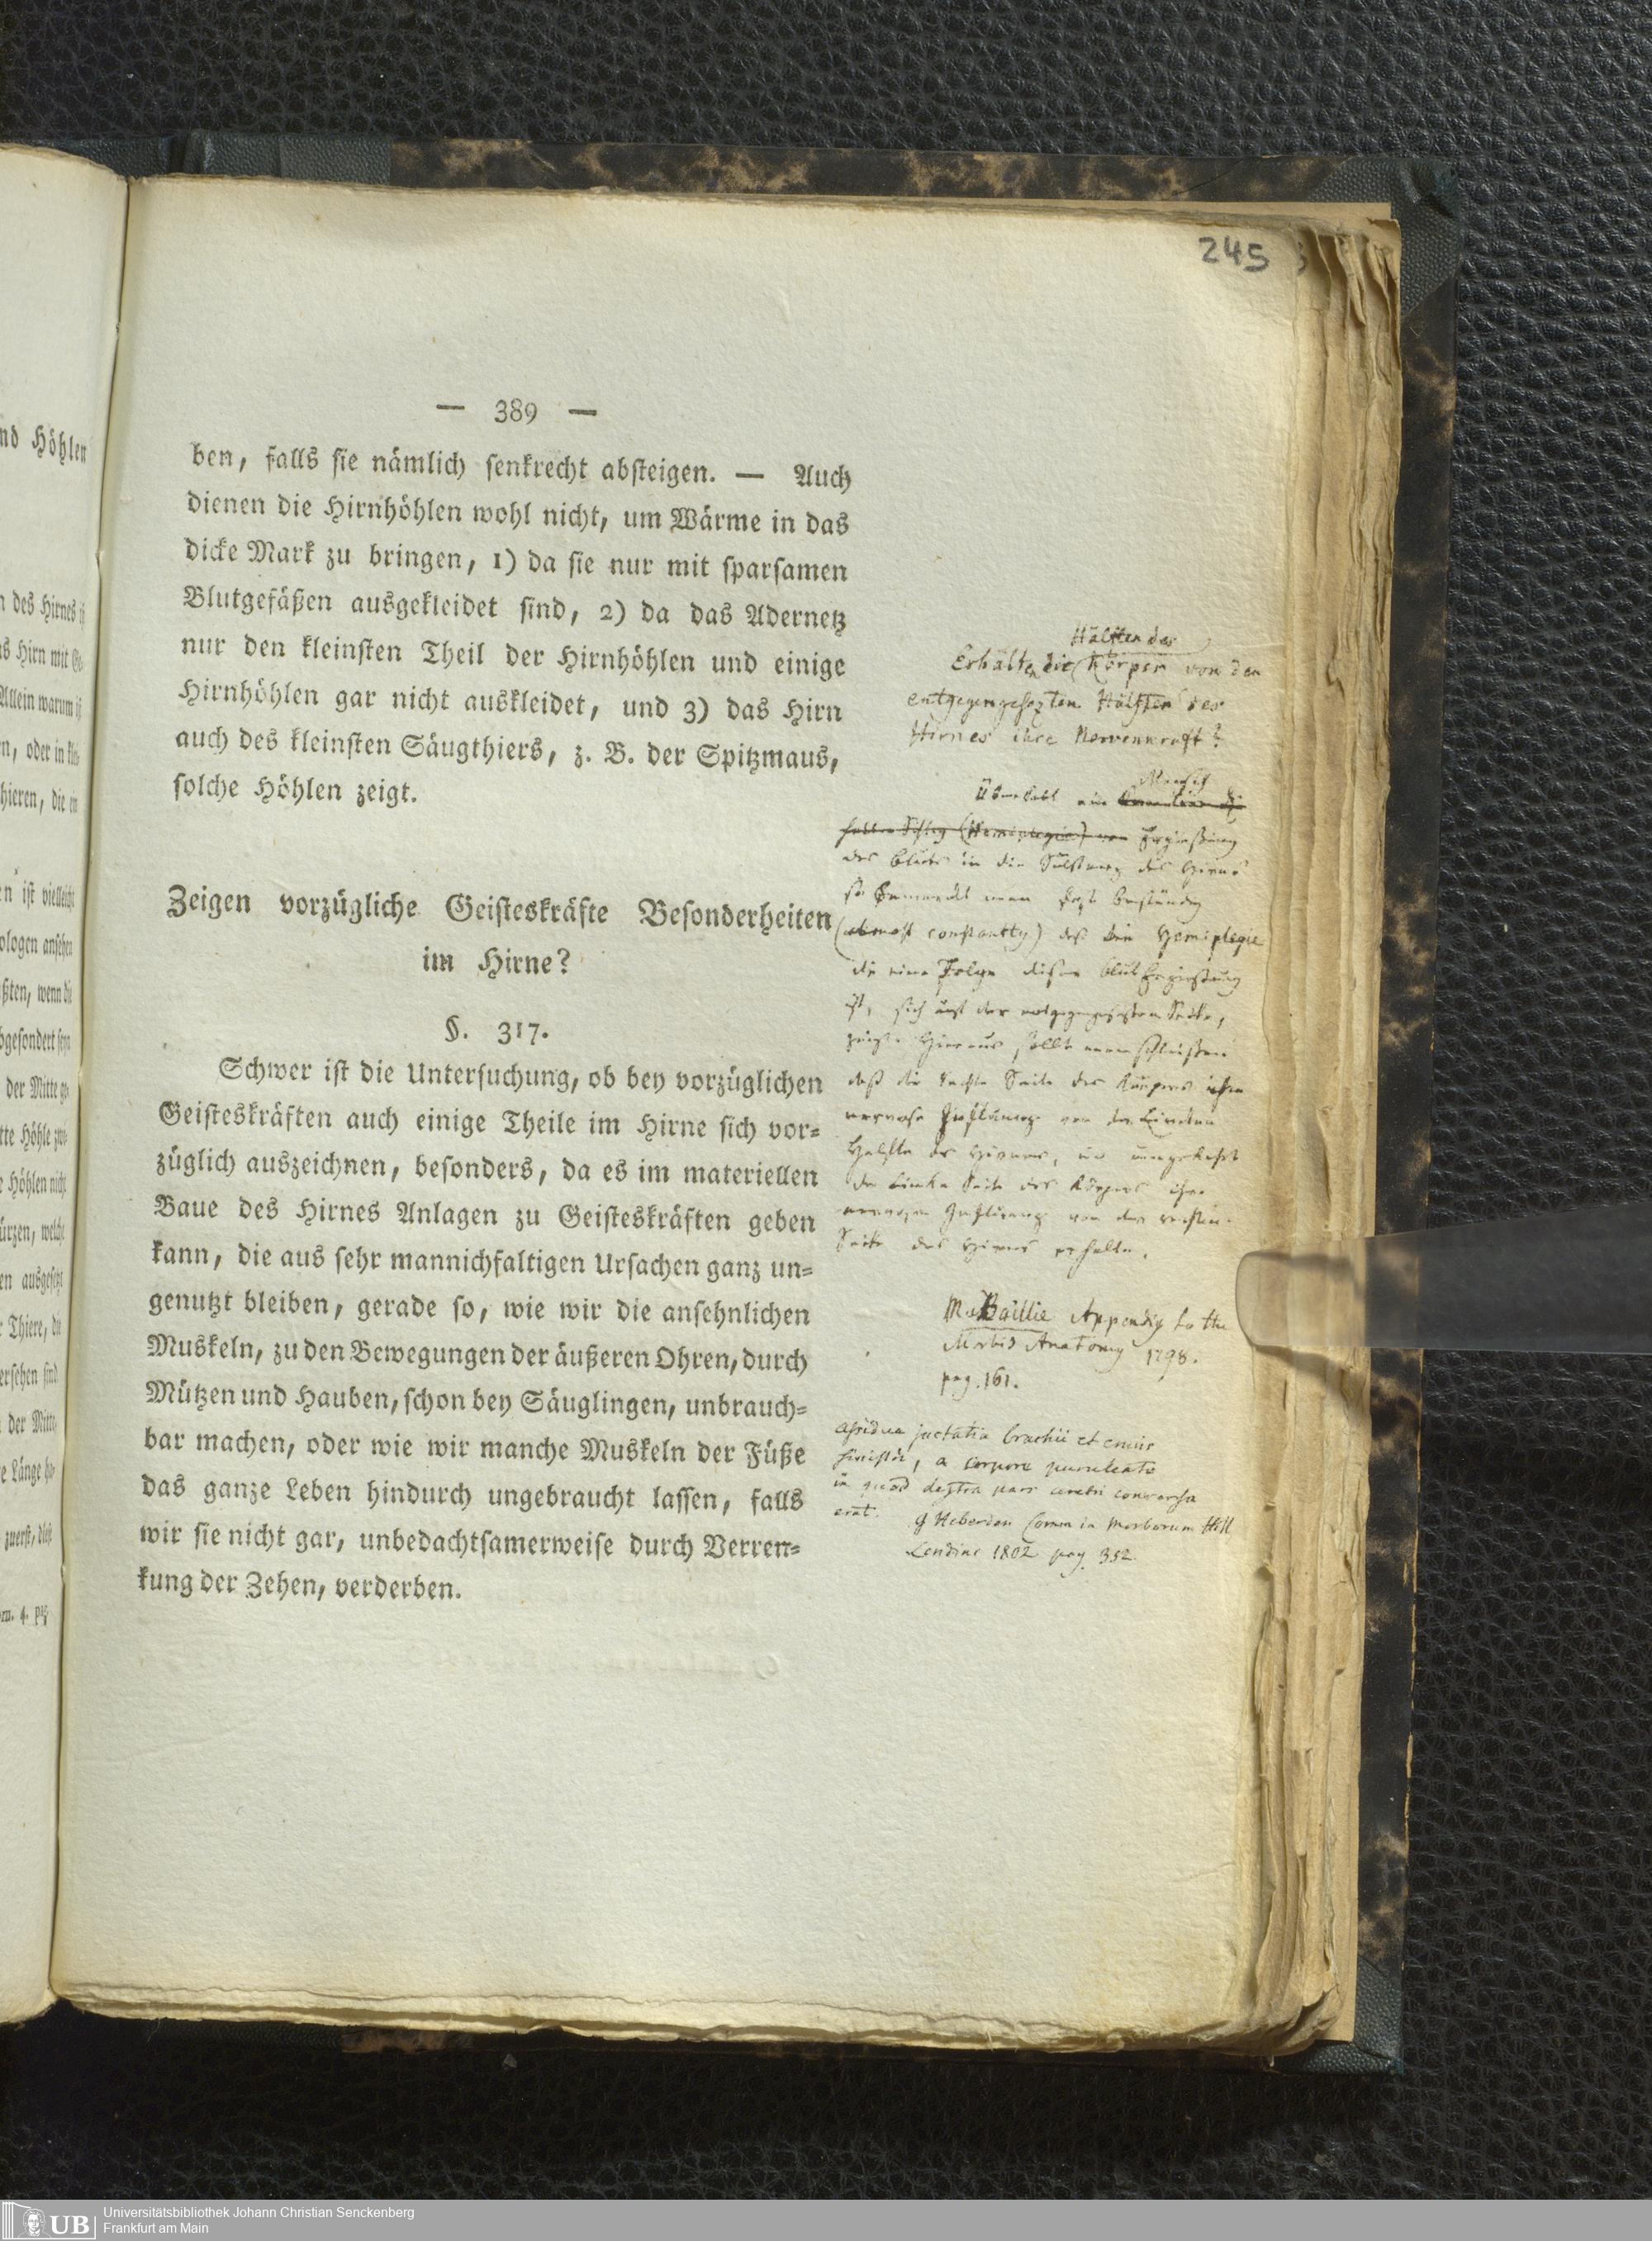 245
— 389 —
ben, falls ſie nämlich ſenkrecht abſteigen. — Auch
dienen die Hirnhöhlen wohl nicht, um Wärme in das
dicke Mark zu bringen, 1) da ſie nur mit ſparſamen
Blutgefäßen ausgekleidet ſind, 2) da das Adernetz
nur den kleinſten Theil der Hirnhöhlen und einige
Hirnhöhlen gar nicht auskleidet, und 3) das Hirn
auch des kleinſten Säugthiers, z. B. der Spitzmaus,
ſolche Höhlen zeigt.
Zeigen vorzügliche Geiſteskräfte Beſonderheiten
im Hirne?
§. 317.
Schwer iſt die Unterſuchung, ob bey vorzüglichen
Geiſteskräften auch einige Theile im Hirne ſich vor-
züglich auszeichnen, beſonders, da es im materiellen
Baue des Hirnes Anlagen zu Geiſteskräften geben
kann, die aus ſehr mannichfaltigen Urſachen ganz un-
genutzt bleiben, gerade ſo, wie wir die anſehnlichen
Muskeln, zu den Bewegungen der äußeren Ohren, durch
Mützen und Hauben, ſchon bey Säuglingen, unbrauch-
bar machen, oder wie wir manche Muskeln der Füße
das ganze Leben hindurch ungebraucht laſſen, falls
wir ſie nicht gar, unbedachtſamerweiſe durch Verren-
kung der Zehen, verderben.
Hälften des
Erhalten die Körper von den
entgegengesezten Hälften des
Hirnes ihre Nervenkraft?
Überlebt ein Mensch
Ergießung
des Bluts in die Substanz des Hirns
so bemerkt man fast beständig
(almost constantly) daß die Hemiplegie
die eine Folge dieser Blut Ergießung
ist, sich auf der entgegengesezten Seite,
zeigt. Hieraus sollte man schließen
daß die rechte Seite des Körpers ihre
nervose Influenz von der Linken
Hälfte des Hirnes, und umgekehrt
die Linke Seite des Körpers ihre
Influenz von der rechten
Seite des Hirns erhalte.
M. Baillie Appendix to the
Morbid Anatomy 1798.
pag. 161.
assidua jactatio brachii et cruris
sinistri, a corpore purulento
in quod dextra pars cerebri conversa
erat. G Heberden Comm in Morborum Hist
Londini 1802 pag. 352.
nd Höhlen
des Hirnes
Hirn mit
Allein warum
oder in
hieren, die
iſt vielleicht
ologen anſehen
ßten, wenn die
bgeſondert ſeyn
der Mitte
tte Höhle
Höhlen nicht
ürzen, welche
en ausgeſetzt
Thiere, die
erſehen ſind
der Mitte
Länge
zuerſt,
UB Universitätsbibliothek Johann Christian Senckenberg
Frankfurt am Main